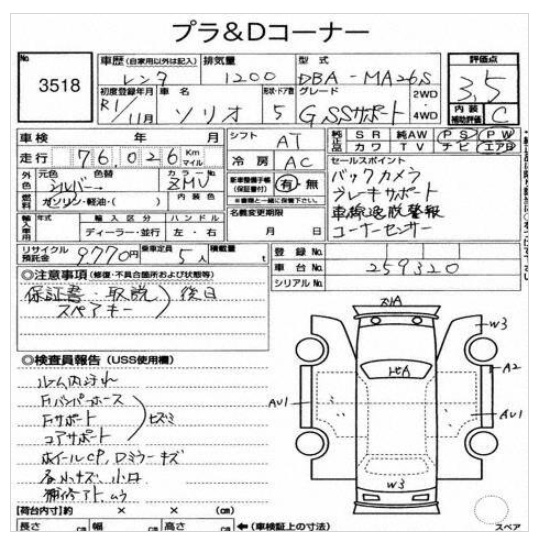 プラ&Dコーナー
No. 3518
車歴 (自家用以外は記入) レンタ
排気量 1200
型式 DBA-MA26S
評価点 3.5
初度登録年月 R1/11月
車名 ソリオ
形状・ドア数 5
グレード G SSサポート
2WD・4WD
内装補助評価 C
車検 年 月
シフト AT
純正品 SR 純AW PS PW
カワ TV ナビ エアB
走行 76,026 Km マイル
冷房 AC
セールスポイント
バックカメラ
ブレーキサポート
車線逸脱警報
コーナーセンサー
外色 元色 シルバー 色替
カラーNo. ZMV
新車整備手帳(保証書付) 有・無
※書類と一緒に保管下さい。
燃料 ガソリン・軽油・( ) 内装色
名義変更期限 月 日
輸入車用 年式 輸入区分 ハンドル
ディーラー・並行 左・右
リサイクル預託金 9,770円
乗車定員 5人
積載量 t
登録No.
車台No. 259320
シリアルNo.
◎注意事項 (修復・不具合箇所および状態等)
保証書・取説 後日
スペアキー
◎検査員報告 (USS使用欄)
ルーム内汚れ
Fバンパーホース
Fサポート
コアサポート
ヒズミ
ホイールCP、Dミラーキズ
各小キズ、小凹
補修アト、ムラ
スリA
W3
トビA
A2
AU1
AU1
W3
スペア
【荷台内寸】約 × × (cm)
長さ cm 幅 cm 高さ cm ←(車検証上の寸法)